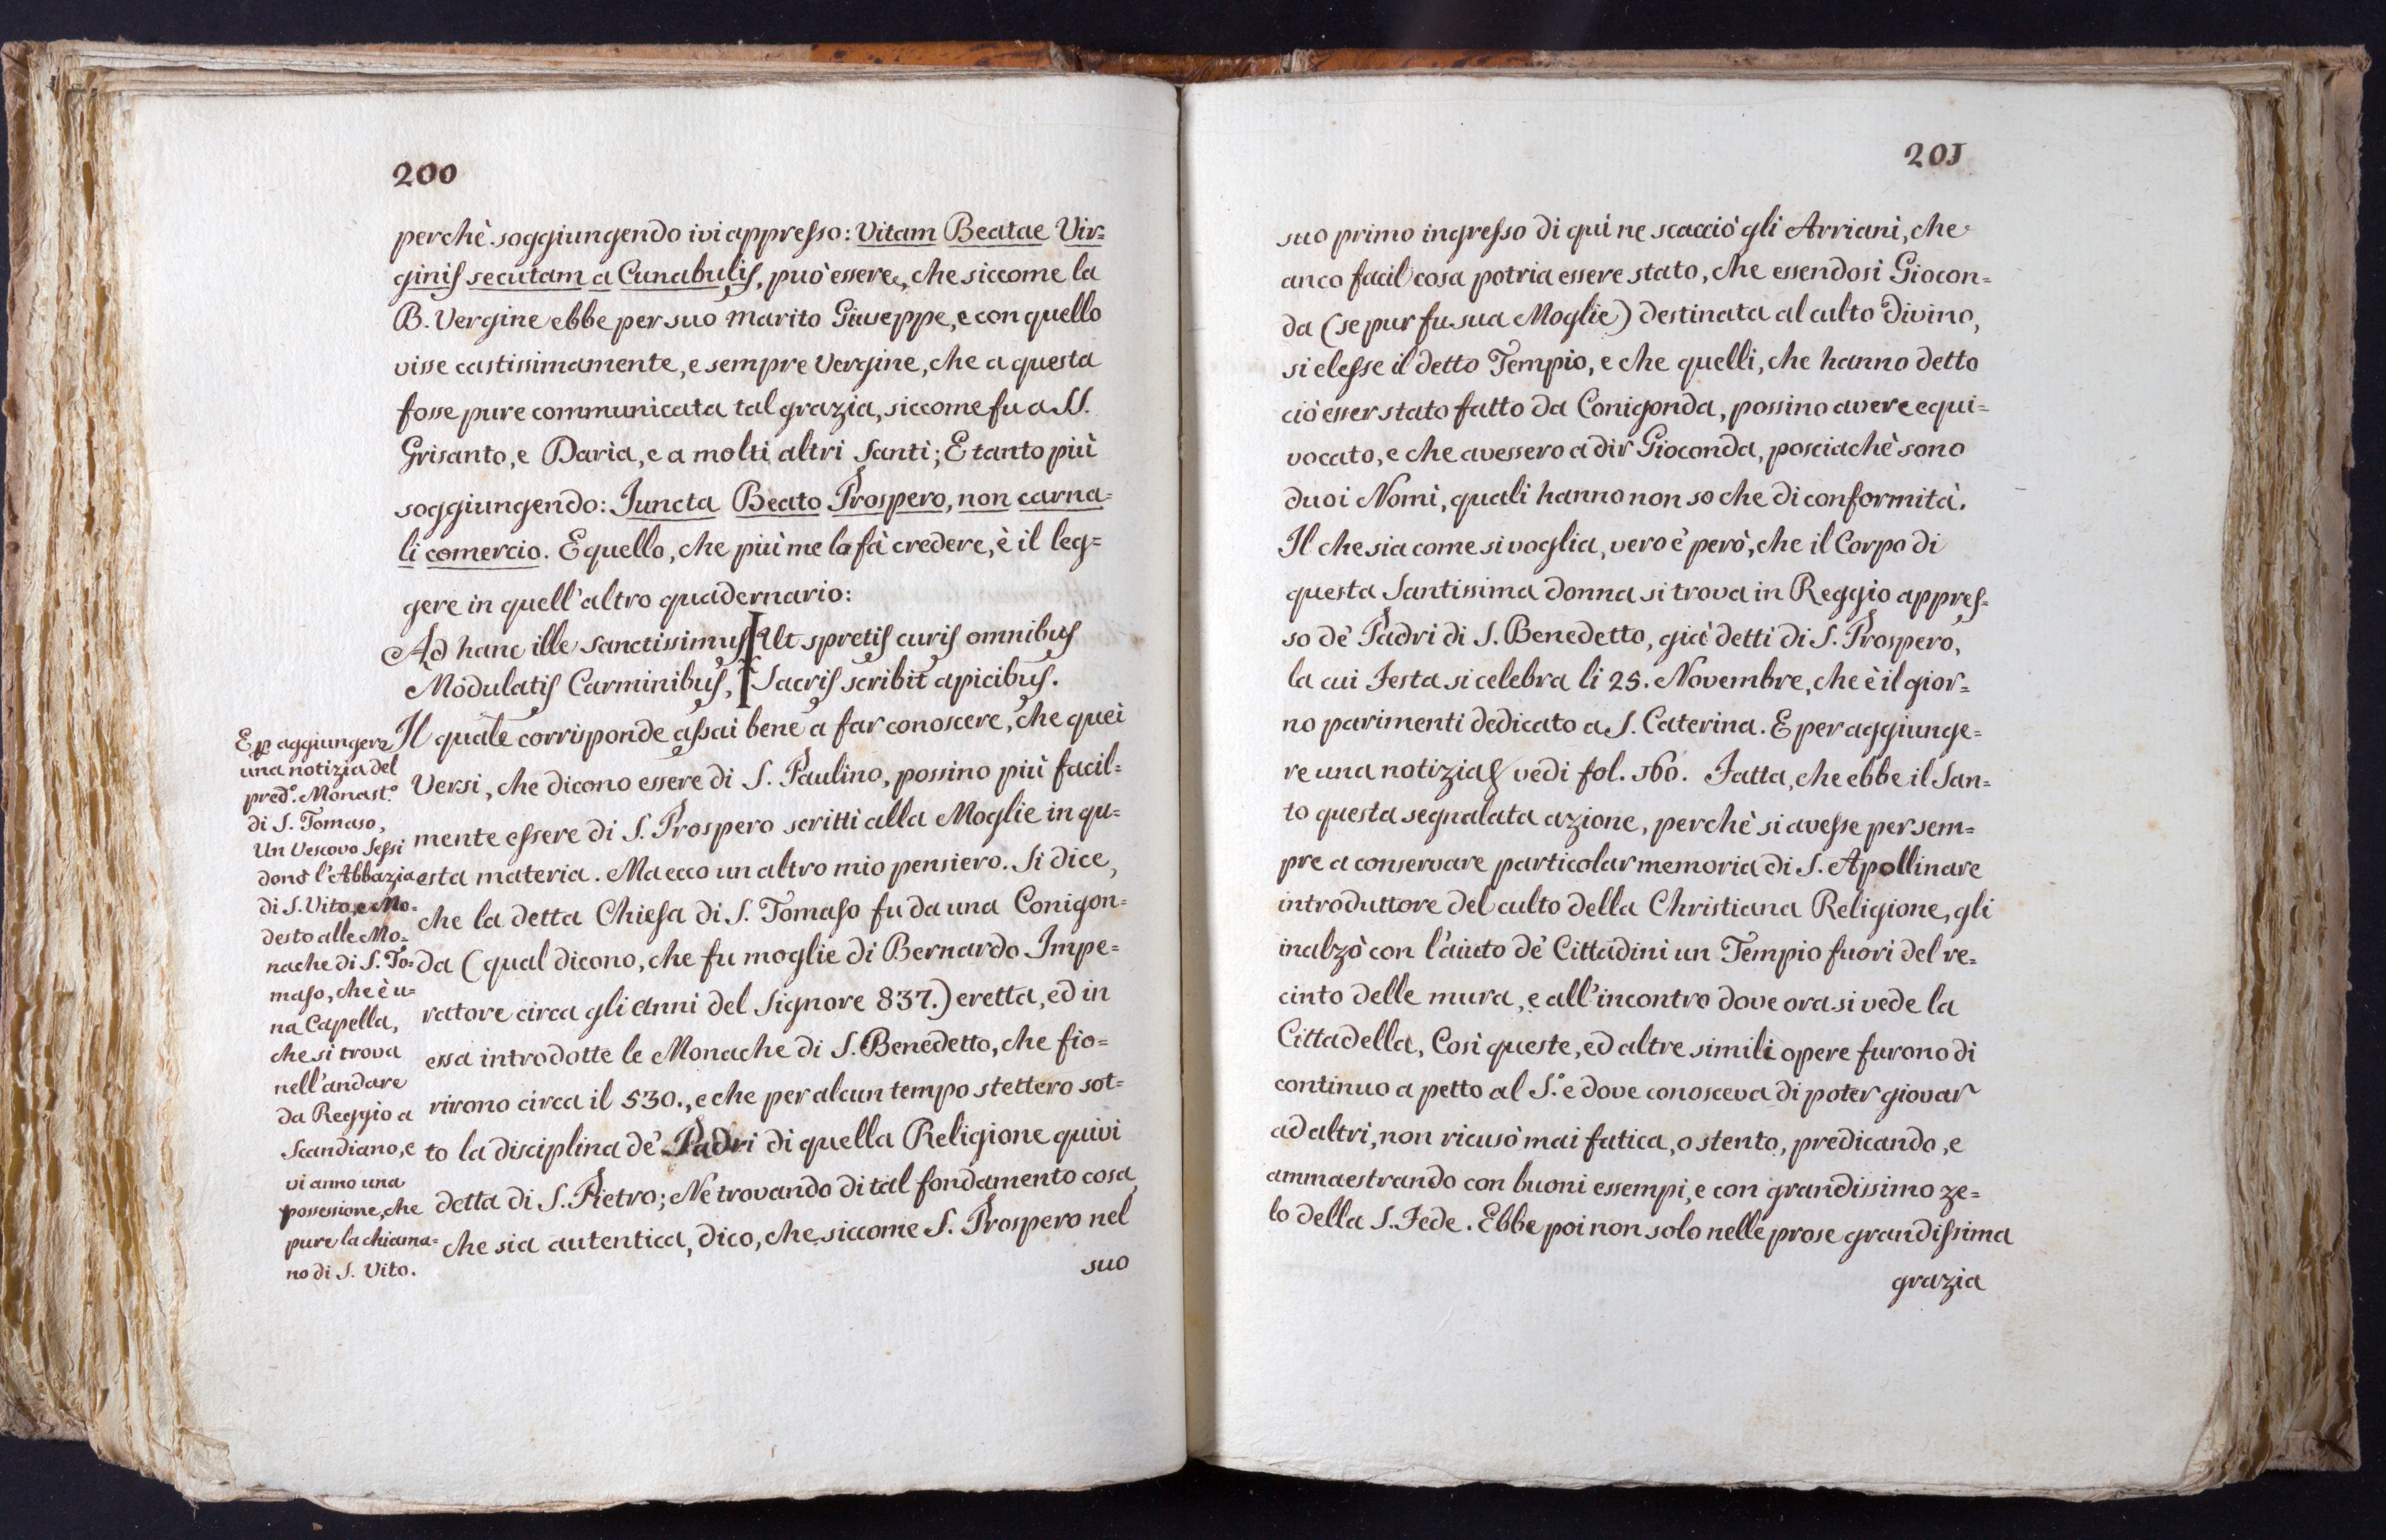 200
perchè soggiungendo ivi appresso: Vitam Beatae Vir=
ginis secutam a Cunabulis, può essere, che siccome la
B. Vergine ebbe per suo marito Giuseppe, e con quello
visse castissimamente, e sempre Vergine, che a questa
fosse pure communicata tal grazia, siccome fu a SS.
Grisanto, e Daria, e a molti altri Santi; E tanto più
soggiungendo: Juncta Beato Prospero, non carna=
li comercio. E quello, che più me lo fà credere, è il leg=
gere in quell'altro quadernario:
Ad hanc ille sanctissimus Ut spretis curis omnibus
Modulatis Carminibus, Sacris scribit apicibus.
Il quale corrisponde assai bene a far conoscere, che quei
Versi, che dicono essere di S. Paulino, possino più facil=
mente essere di S. Prospero scritti alla Moglie in qu=
esta materia. Ma ecco un altro mio pensiero. Si dice,
che la detta Chiesa di S. Tomaso fu da una Conigon=
da (qual dicono, che fu moglie di Bernardo Impe=
ratore circa gli anni del Signore 837.) eretta, ed in
essa introdotte le Monache di S. Benedetto, che fio=
rirono circa il 530., e che per alcun tempo stettero sot=
to la disciplina de' Padri di quella Religione quivi
detta di S. Pietro; Ne trovando di tal fondamento cosa
che sia autentica, dico, che siccome S. Prospero nel
suo
E p aggiungere
una notizia del
pred.º Monast.º
di S. Tomaso,
Un Vescovo Sessi
donò l'Abbazia
di S. Vito, e Mo=
desto alle Mo=
nache di S. To=
maso, che è u=
na Capella,
che si trova
nell'andare
da Reggio a
Scandiano, e
vi anno una
possessione, che
pure la chiama=
no di S. Vito.
201
suo primo ingresso di quì ne scacciò gli Arriani, che
anco facil cosa potria essere stato, che essendosi Giocon=
da (se pur fu sua Moglie) destinata al culto divino,
si elesse il detto Tempio, e che quelli, che hanno detto
ciò esser stato fatto da Conigonda, possino avere equi=
vocato, e che avessero a dir Gioconda, posciachè sono
duoi Nomi, quali hanno non so che di conformità.
Il che sia come si voglia, vero è però, che il Corpo di
questa Santissima donna si trova in Reggio appres=
so de' Padri di S. Benedetto, già detti di S. Prospero,
la cui Festa si celebra li 25. Novembre, che è il gior=
no parimenti dedicato a S. Caterina. E per aggiunge=
re una notizia vedi fol. 560. Fatta, che ebbe il San=
to questa segnalata azione, perchè si avesse per sem=
pre a conservare particolar memoria di S. Apollinare
introduttore del culto della Christiana Religione, gli
inalzò con l'aiuto de' Cittadini un Tempio fuori del re=
cinto delle mura, e all'incontro dove ora si vede la
Cittadella, Così queste, ed altre simili opere furono di
continuo a petto al S.º e dove conosceva di poter giovar
ad altri, non ricusò mai fatica, o stento, predicando, e
ammaestrando con buoni essempi, e con grandissimo ze=
lo della S. Fede. Ebbe poi non solo nelle prose grandissima
grazia